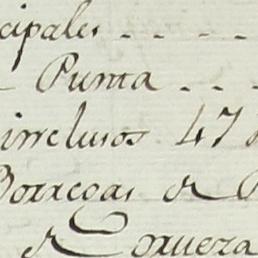 cipales - - - -
- Punta - - -
inclusos 47
Borregas de
de Corveza